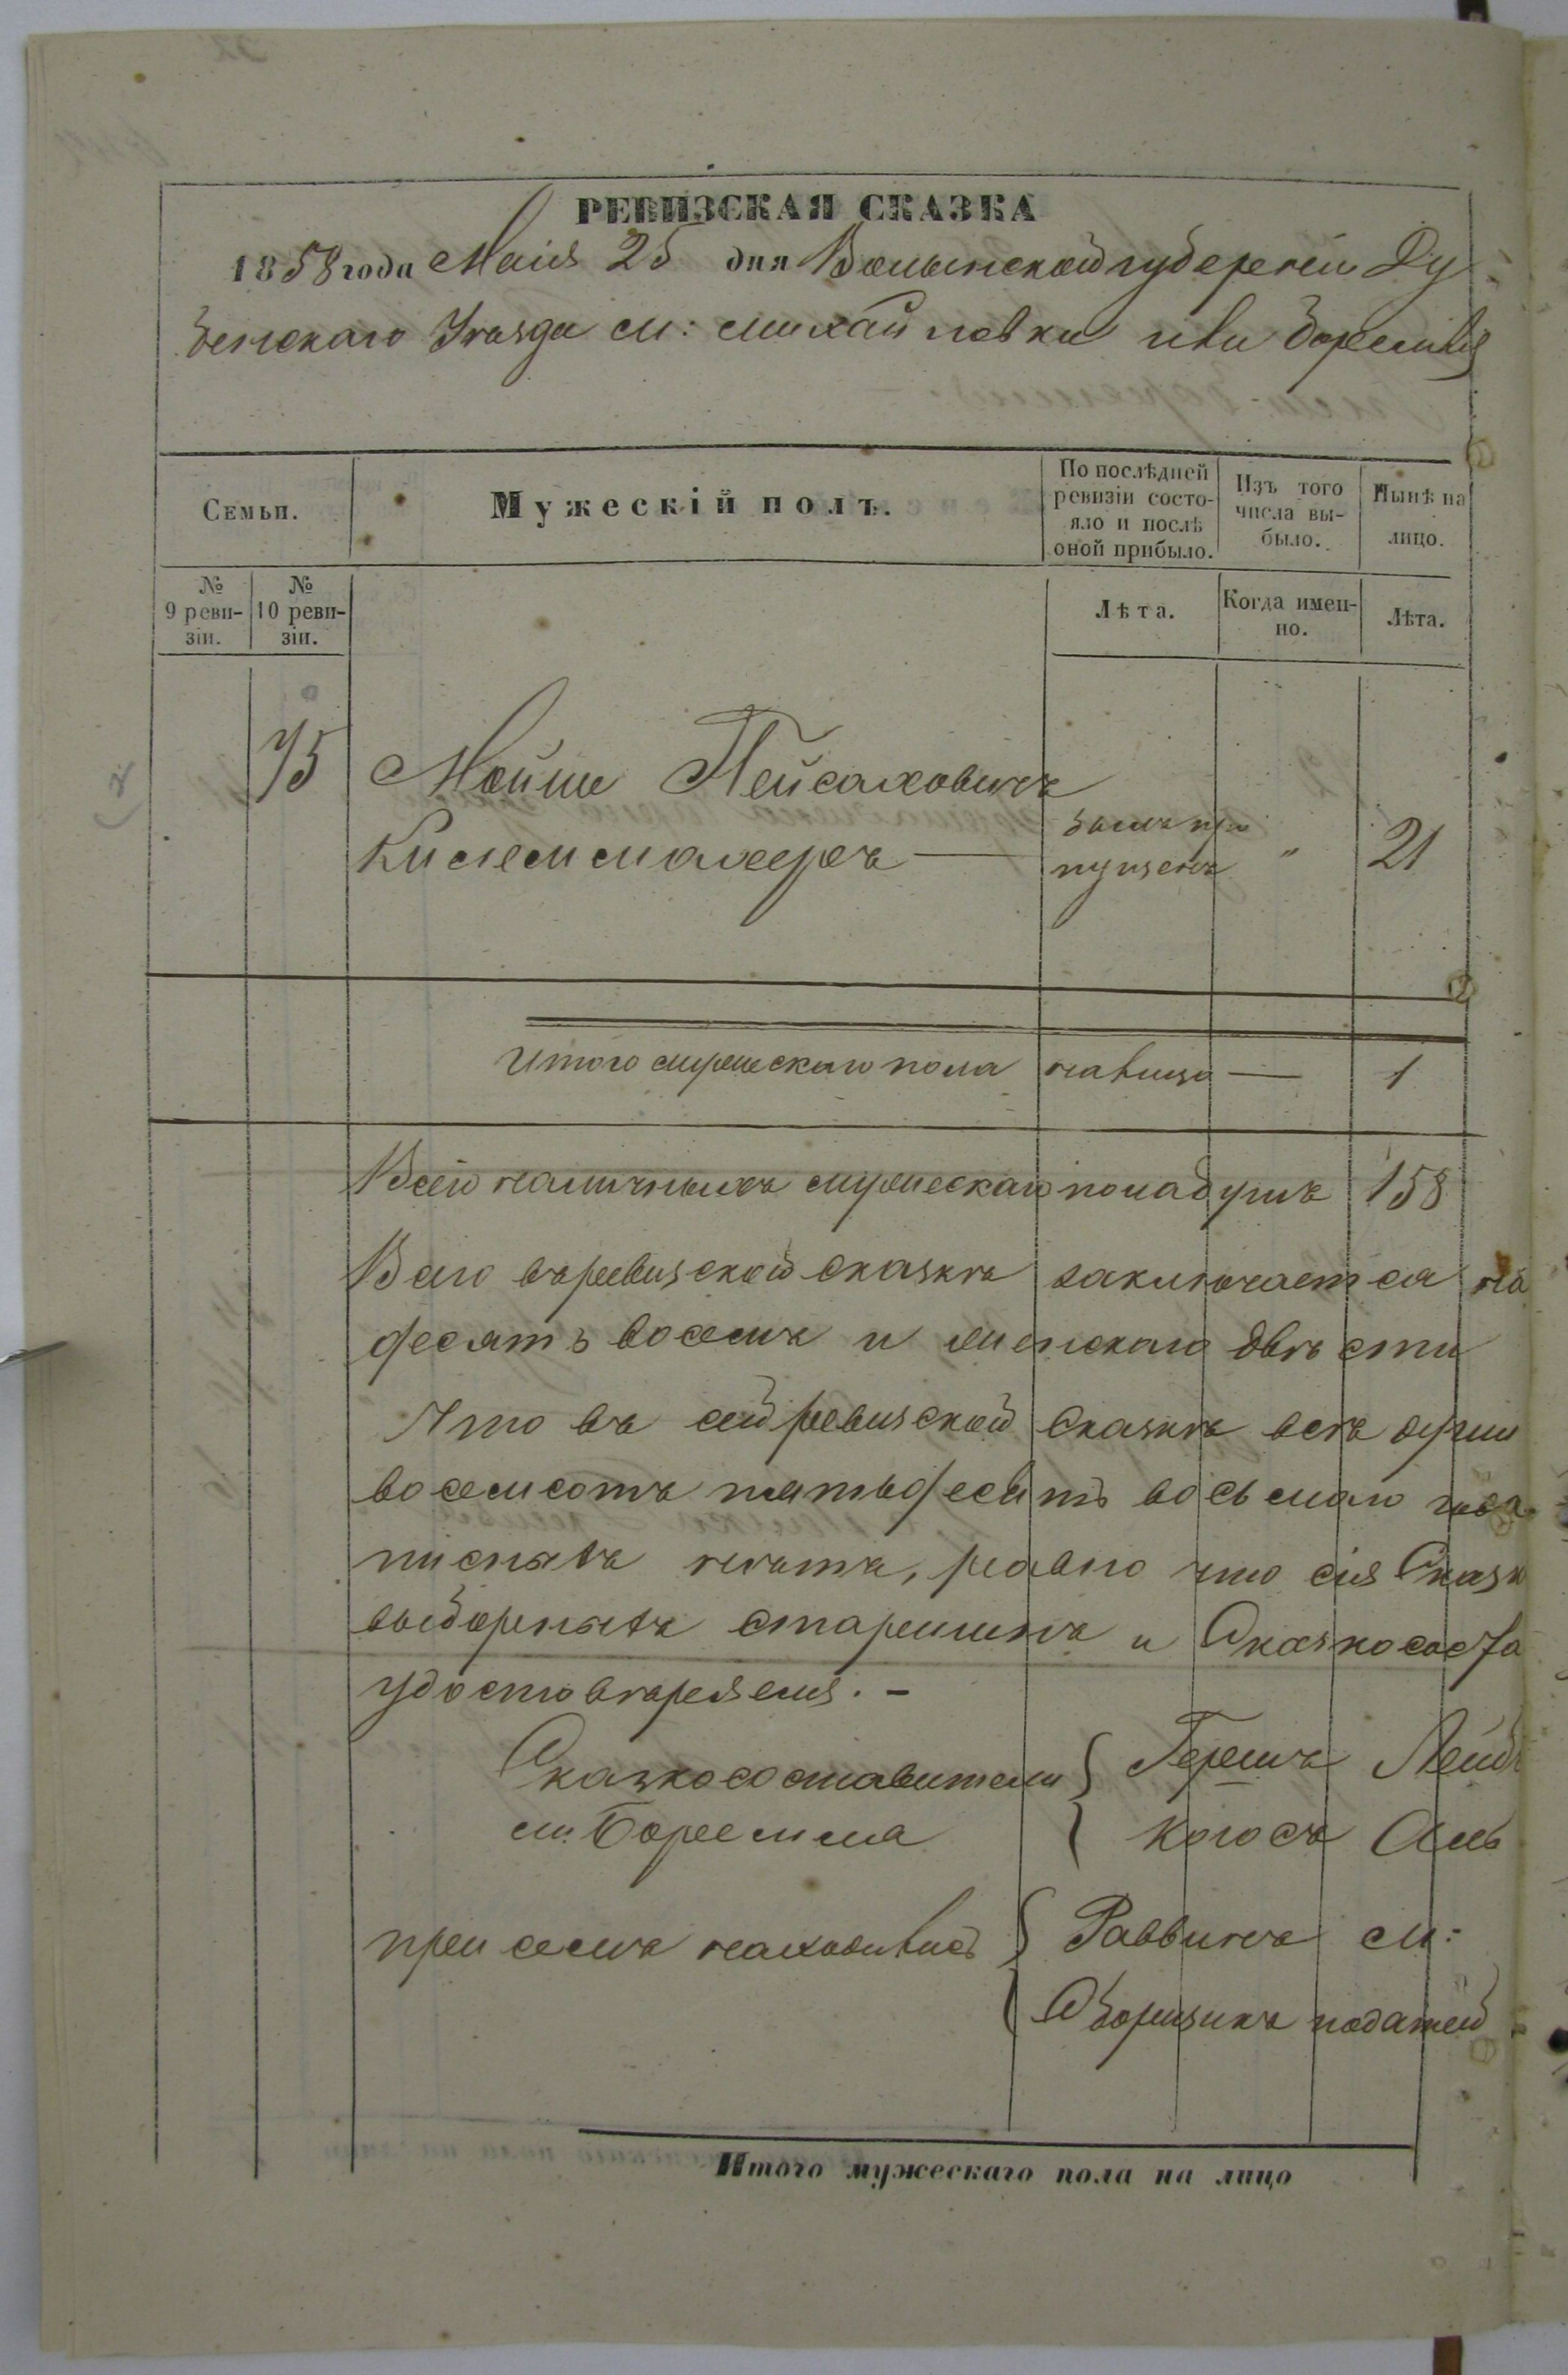 РЕВИЗСКАЯ СКАЗКА
1858 года Маія 25 дня Волынской губерніи Ду
бенскаго Уѣзда м: Михайловки или Боремля
Семьи.
Мужескій полъ.
По послѣдней ревизіи состо-
яло и послѣ
оной прибыло.
Изъ того
числа вы-
было.
Нынѣ на
лицо.
№
9 реви-
зіи.
№
10 реви-
зіи.
Лѣта.
Когда имен-
но.
Лѣта.
75 Мойше Пейсаховичъ
былъ про
Кислемилихеръ — пущенъ " 21
Итого мужескаго пола налицо — 1
Всего наличныхъ мужескаго пола душъ 158
Всего въ ревизской сказкѣ заключается на
десять восемь и женскаго двѣсти
Что въ сей ревизской Сказкѣ всѣ души
восемсотъ пятьдесятъ восьмаго года
писныхъ нѣтъ, равно что сія Сказк
выборныхъ старшинъ и Сказкососта
удостовѣряемъ. -
Сказкосоставители { Гершъ Лейб
м. Боремля { Когосъ
при семъ находились { Раввинъ м:
{ Сборщикъ податей
Итого мужескаго пола на лицо